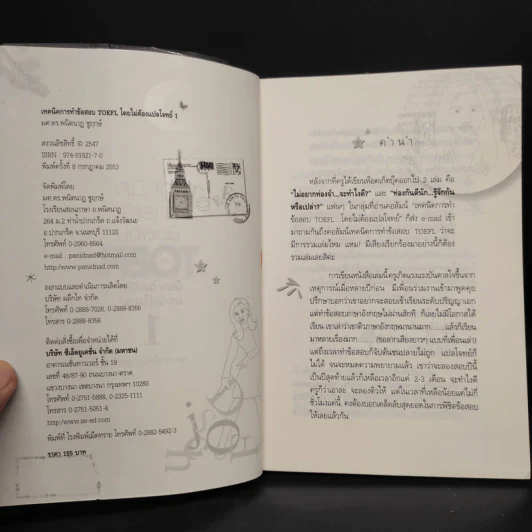 เทคนิคการทำข้อสอบ TOEFL โดยไม่ต้องแปลโจทย์ 1
ผศ.ดร.พนิตนาฏ ชูฤกษ์
สงวนลิขสิทธิ์ © 2547
ISBN : 974-91821-7-0
พิมพ์ครั้งที่ 8 กรกฎาคม 2553
จัดพิมพ์โดย
ผศ.ดร.พนิตนาฏ ชูฤกษ์
โรงเรียนสอนภาษา อ.พนิตนาฏ
264 ม.2 ท่าน้ำปากเกร็ด ถ.แจ้งวัฒนะ
อ.ปากเกร็ด จ.นนทบุรี 11120
โทรศัพท์ 0-2960-8564
e-mail : panudnad@hotmail.com
http://www.panudnad.com
ออกแบบและดำเนินการผลิตโดย
บริษัท ผลึกไท จำกัด
โทรศัพท์ 0-2888-7026, 0-2888-8356
โทรสาร 0-2888-8356
ติดต่อสั่งซื้อจำนวนจำหน่ายได้ที่
บริษัท ซีเอ็ดยูเคชั่น จำกัด (มหาชน)
อาคารเนชั่นทาวเวอร์ ชั้น 19
เลขที่ 46/87-90 ถนนบางนา-ตราด
แขวงบางนา เขตบางนา กรุงเทพฯ 10260
โทรศัพท์ 0-2751-5888, 0-2325-1111
โทรสาร 0-2751-5051-4
http://www.se-ed.com
พิมพ์ที่ โรงพิมพ์เม็ดทราย โทรศัพท์ 0-2882-5492-3
ราคา 155 บาท
คำนำ
หลังจากที่ครูได้เขียนพ็อคเก็ตบุ๊คออกไป 2 เล่ม คือ
"ไม่อยากท่องจำ...จะทำไงดี?" และ "ท่องกันดีนัก...รู้จักกัน
หรือเปล่า?" แฟนๆ ในกลุ่มที่อ่านคอลัมน์ "เทคนิคการทำ
ข้อสอบ TOEFL...โดยไม่ต้องแปลโจทย์" ก็ส่ง e-mail เข้า
มาถามกันถึงคอลัมน์เทคนิคการทำข้อสอบ TOEFL ว่าจะ
มีการรวมเล่มไหม แหม! มีเสียงเรียกร้องมาอย่างนี้ก็ต้อง
รวมเล่มเลยสิคะ
การเขียนหนังสือเล่มนี้ครูเกิดแรงแรงบันดาลใจขึ้นจาก
เหตุการณ์เมื่อหลายปีก่อน มีเพื่อนร่วมงานเข้ามาพูดคุย
ปรึกษาบอกว่าเขาอยากจะสอบเข้าเรียนระดับปริญญาเอก
แต่ทำข้อสอบภาษาอังกฤษไม่ผ่านสักที ก็เลยไม่มีโอกาสได้
เรียน เขาเล่าว่าเขาติวภาษาอังกฤษมานานมาก......แล้วก็เรียน
มาหลายเรื่องมาก...... (ขอลากเสียงยาวๆ แบบที่เพื่อนเล่า)
แต่ถึงเวลาทำข้อสอบก็จับต้นชนปลายไม่ถูก แปลโจทย์ก็
ไม่ได้ จนจะหมดความพยายามแล้ว เขาว่าจะลองสอบปีนี้
เป็นปีสุดท้ายแล้วก็เหลือเวลาอีกแค่ 2-3 เดือน จะทำไงดี
ครูก็ว่าเอาล่ะ จะลองติวให้ แต่ในเวลาที่เหลือน้อยแค่ไม่กี่
ชั่วโมงแค่นี้ คงต้องบอกเคล็ดลับสุดยอดในการพิชิตข้อสอบ
ให้เลยแล้วกัน